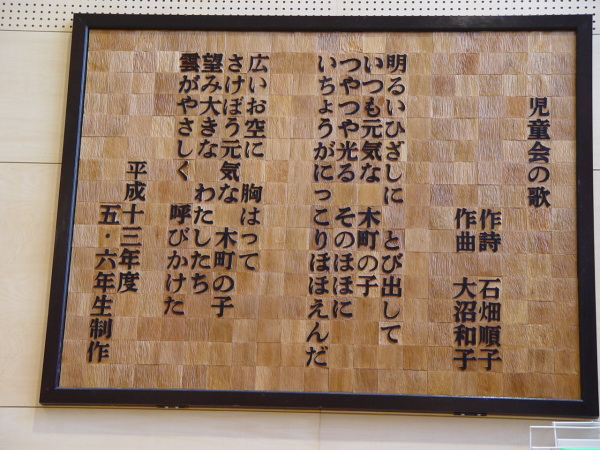 児童会の歌
作詩 石畑順子
作曲 大沼和子
明るいひざしに とび出して
いつも元気な 木町の子
つやつや光る そのほほに
いちょうがにっこりほほえんだ
広いお空に 胸はって
さけぼう元気な 木町の子
望み大きな わたしたち
雲がやさしく 呼びかけた
平成十三年度
五・六年生制作